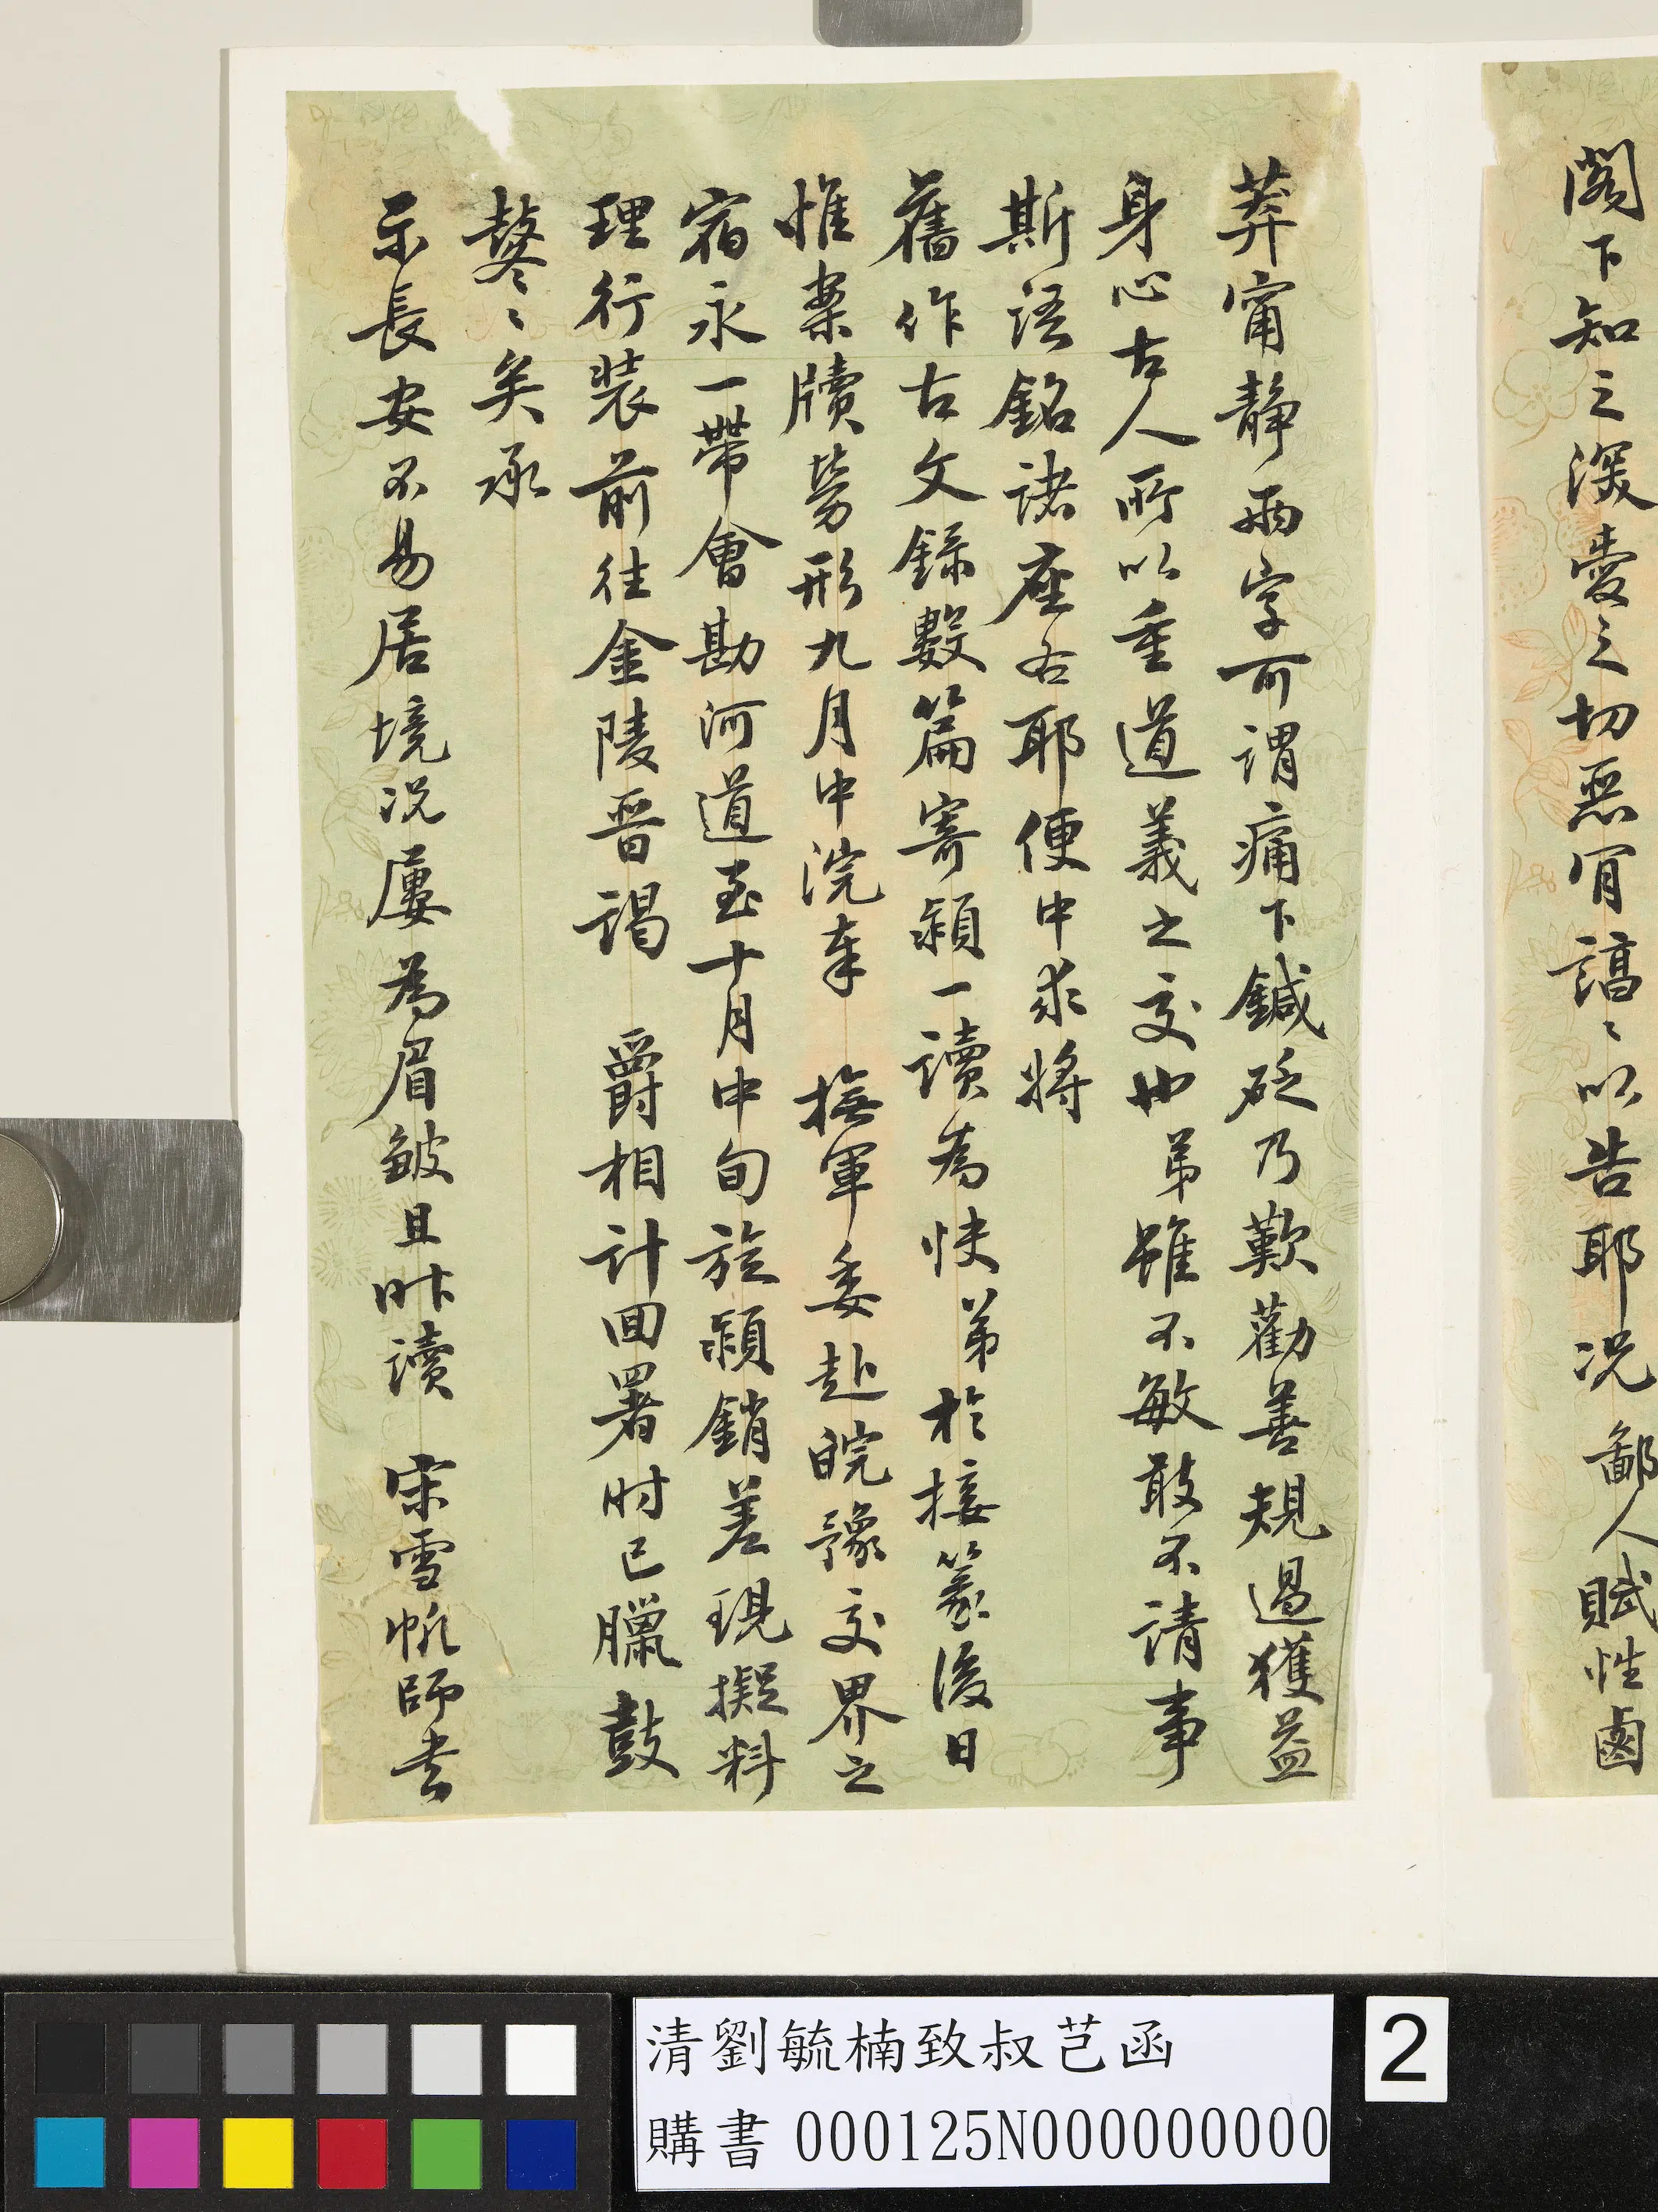 閣下知之深愛之切惡肎謞〻以告耶况鄙人賦性鹵
莽甯靜兩字可謂痛下鍼砭乃歎勸善規過獲益
身心古人所以重道義之交也弟雖不敏敢不請事
斯語銘諸座右耶便中求將
舊作古文錄數篇寄潁一讀為快弟於接篆後日
惟案牘勞形九月中浣奉 撫軍委赴皖豫交界之
宿永一帶會勘河道至十月中旬旋潁銷差現擬料
理行裝前往金陵晉謁 爵相計回署時已臘鼓
鼕〻矣承
示長安不易居境况屢為眉皺且昨讀 宋雪帆師去
清劉毓楠致叔芑函
購書 000125N000000000
2